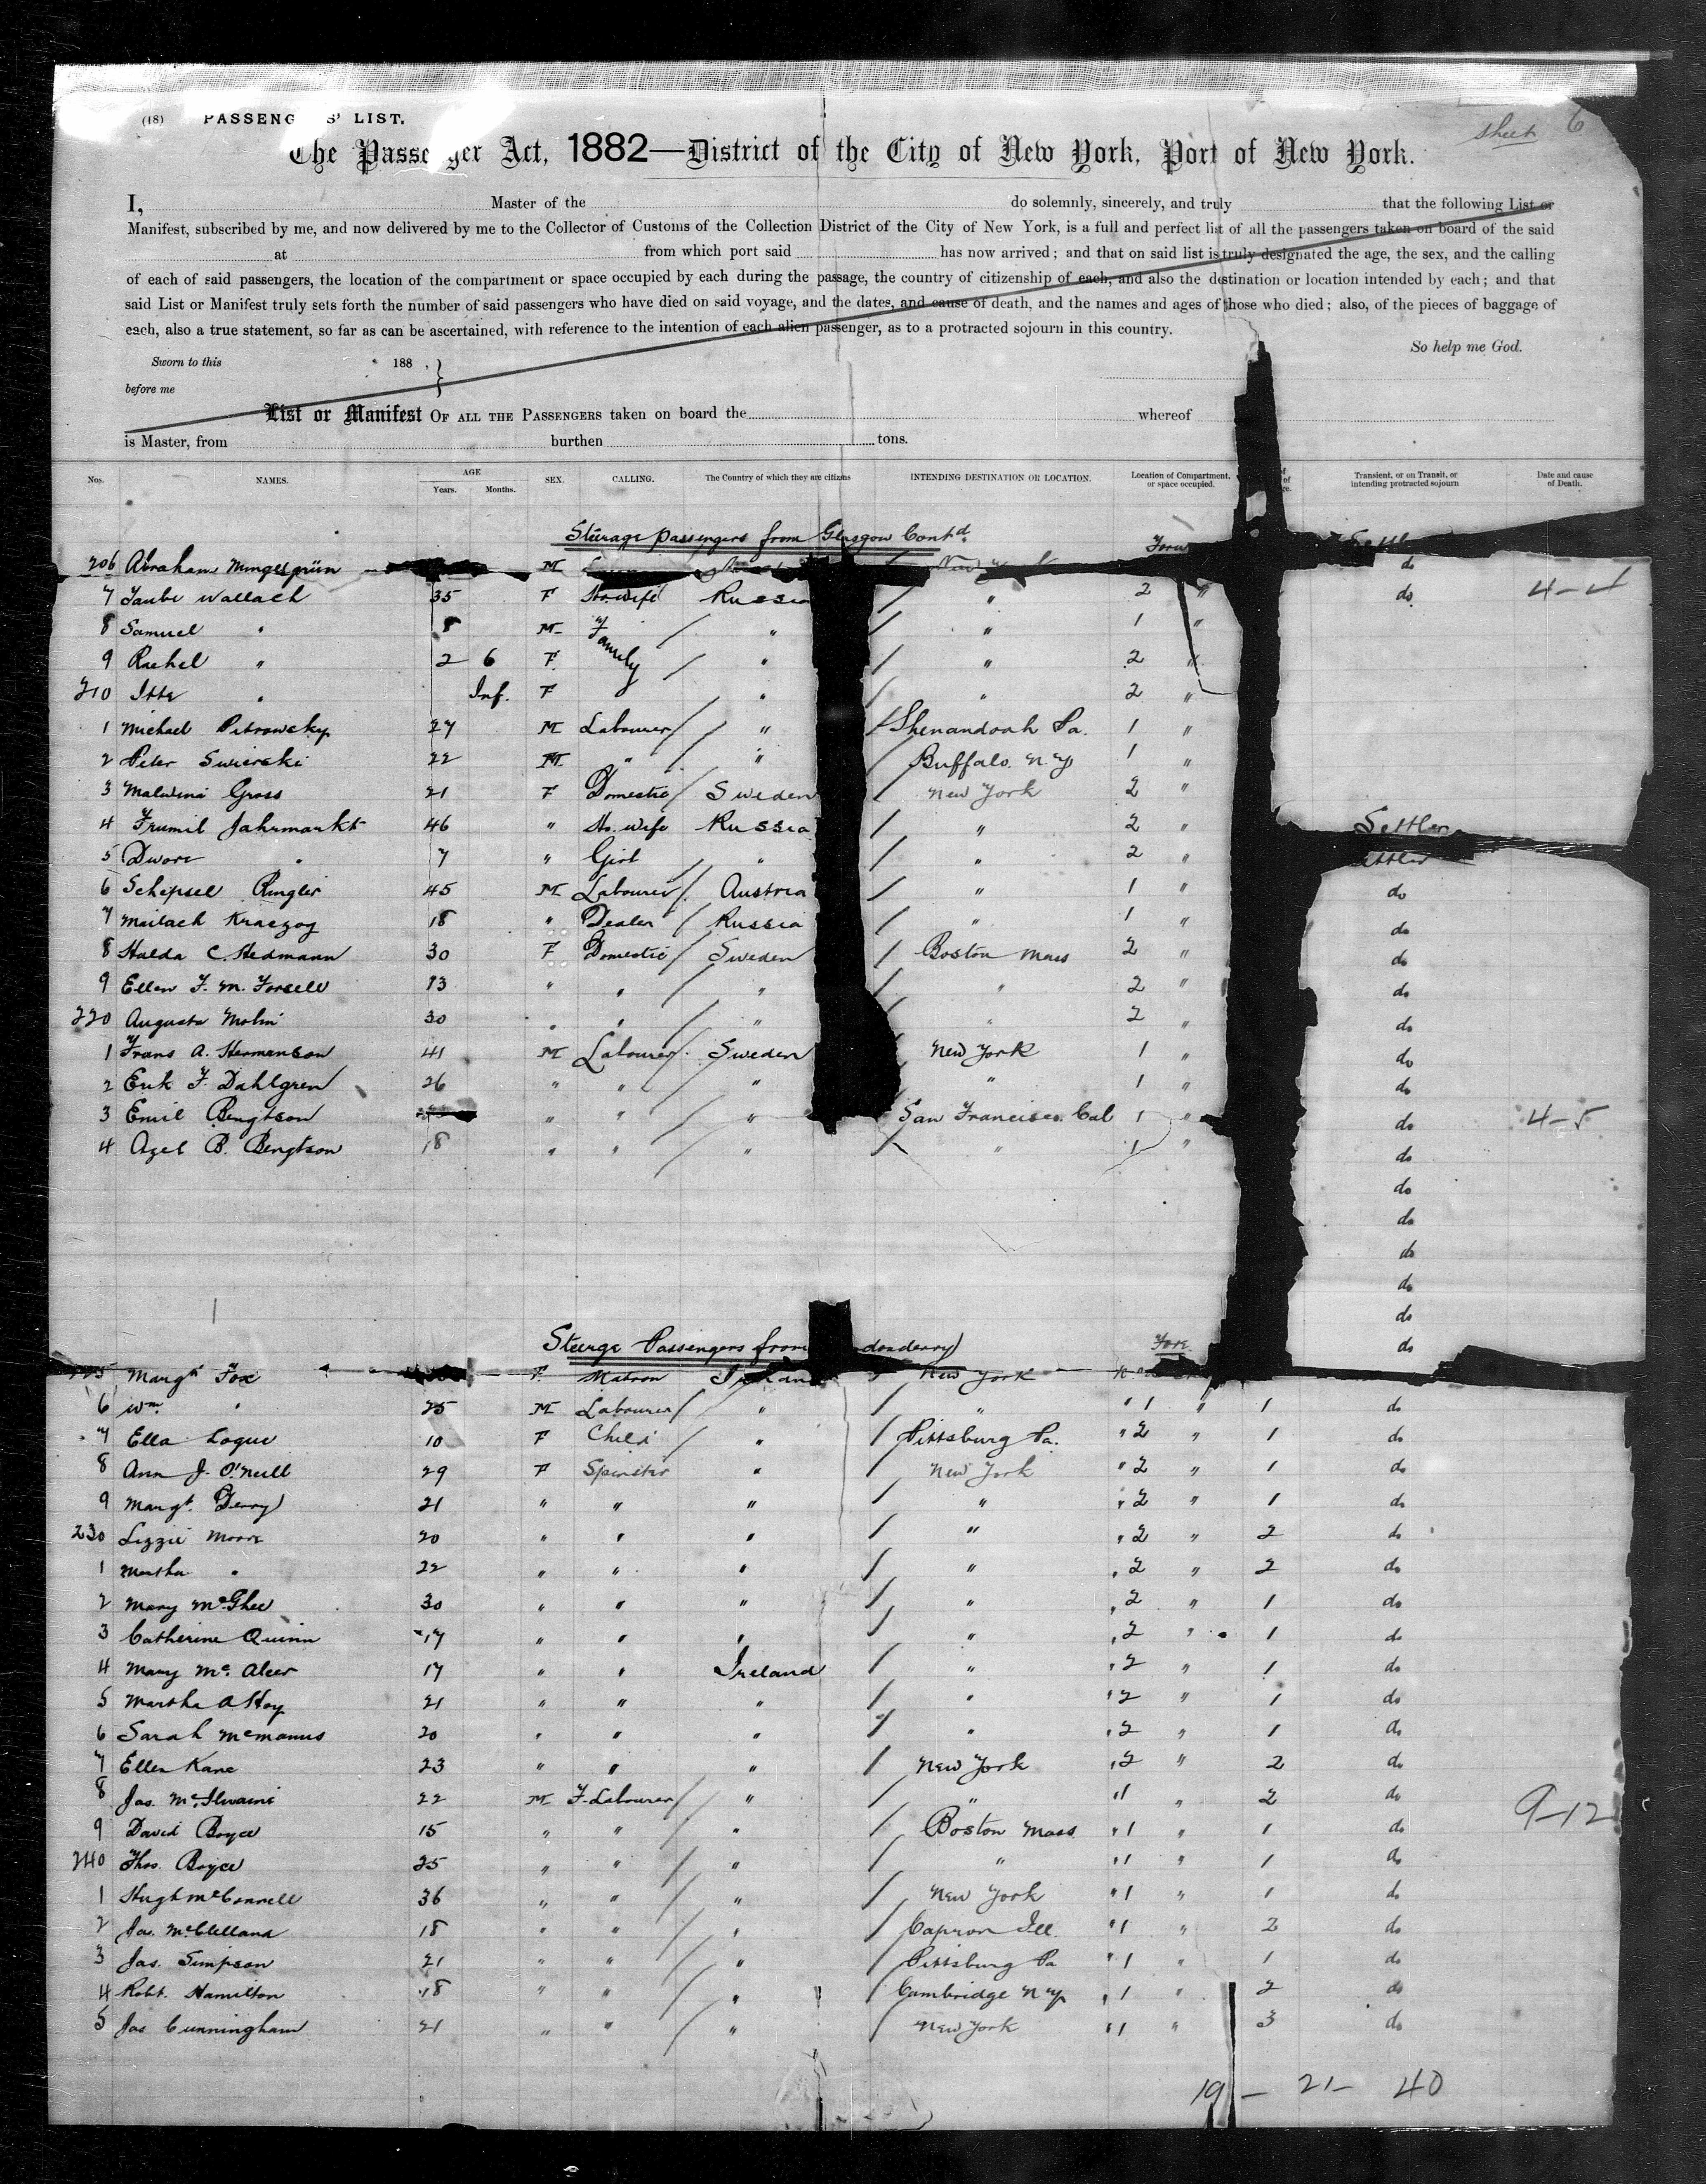 sheet 6
(18) PASSENG S' LIST.
The Passe ger Act, 1882—District of the City of New York, Port of New York.
I, Master of the do solemnly, sincerely, and truly that the following List or
Manifest, subscribed by me, and now delivered by me to the Collector of Customs of the Collection District of the City of New York, is a full and perfect list of all the passengers taken on board of the said
at from which port said has now arrived; and that on said list is truly designated the age, the sex, and the calling
of each of said passengers, the location of the compartment or space occupied by each during the passage, the country of citizenship of each, and also the destination or location intended by each; and that
said List or Manifest truly sets forth the number of said passengers who have died on said voyage, and the dates, and cause of death, and the names and ages of those who died; also, of the pieces of baggage of
each, also a true statement, so far as can be ascertained, with reference to the intention of each alien passenger, as to a protracted sojourn in this country.
So help me God.
Sworn to this 188 ,
before me
List or Manifest OF ALL THE PASSENGERS taken on board the whereof
is Master, from burthen tons.
Nos. NAMES. AGE Years. Months. SEX. CALLING. The Country of which they are citizens INTENDING DESTINATION OR LOCATION. Location of Compartment, or space occupied. Transient, or on Transit, or intending protracted sojourn Date and cause of Death.
Steerage passengers from Glasgow Contd.
206 Abraham Mungesgrün M New York do
7 Taube Wallach 35 F Ho. wife Russia / " 2 " do 4-4
8 Samuel " 8 M Family / " / " 1 "
9 Rachel " 2 6 F / " / " 2 "
210 Itte " Inf. F " / " 2 "
1 Michael Petrowsky 27 M Labourer / " / Shenandoah Pa. 1 "
2 Peter Swierski 22 M " / " / Buffalo N.Y 1 "
3 Malwina Gross 21 F Domestic / Sweden New York 2 "
4 Frumil Jahrmarkt 46 " Ho. wife Russia / " 2 " Settler
5 Dwore " 7 " Girl / " / " 2 "
6 Schepsel Ringler 45 M Labourer / Austria / " 1 " do
7 Mailach Kraczog 18 " Dealer / Russia / " 1 " do
8 Hulda C. Hedmann 30 F Domestic / Sweden / Boston Mass 2 " do
9 Ellen F. M. Forsell 13 " " / " " 2 " do
220 Augusta Molin 30 " " / " " 2 " do
1 Frans A. Hermanson 41 M Labourer / Sweden New York 1 " do
2 Erik F. Dahlgren 26 " " / " " 1 " do
3 Emil Bengtson " " / " San Francisco. Cal 1 " do 4-5
4 Axel B. Bengtson 18 " " / " " 1 " do
do
do
do
do
do
Steerge Passengers from donderry Fore do
Margt Fox F. Matron / New York
6 Wm. " 25 M Labourer / " / " " 1 " 1 do
7 Ella Logue 10 F Child / " / Pittsburg Pa. " 2 " 1 do
8 Ann J. O'Neill 29 F Spinster " / New York " 2 " 1 do
9 Margt. Derry 21 " " " / " " 2 " 1 do
230 Lizzie Moore 20 " " " / " " 2 " 2 do
1 Martha " 22 " " " / " " 2 " 2 do
2 Mary McGhee 30 " " " / " " 2 " 1 do
3 Catherine Quinn 17 " " " / " " 2 " 1 do
4 Mary Mc. Aleer 17 " " Ireland / " " 2 " 1 do
5 Martha A Hoy 21 " " " / " " 2 " 1 do
6 Sarah McManus 20 " " " / " " 2 " 1 do
7 Ellen Kane 23 " " " / New York " 2 " 2 do
8 Jas. McIlwaine 22 M F. Labourer / " / " " 1 " 2 do 9-12
9 David Boyce 15 " " / " / Boston Mass " 1 " 1 do
240 Thos. Boyce 25 " " / " / " " 1 " 1 do
1 Hugh McConnell 36 " " / " / New York " 1 " 1 do
2 Jas. McClelland 18 " " / " / Capron Ill. " 1 " 2 do
3 Jas. Simpson 21 " " / " / Pittsburg Pa " 1 " 1 do
4 Robt. Hamilton 18 " " / " / Cambridge N Y " 1 " 2 do
5 Jas Cunningham 21 " " / " / New York " 1 " 3 do
19 - 21 - 40